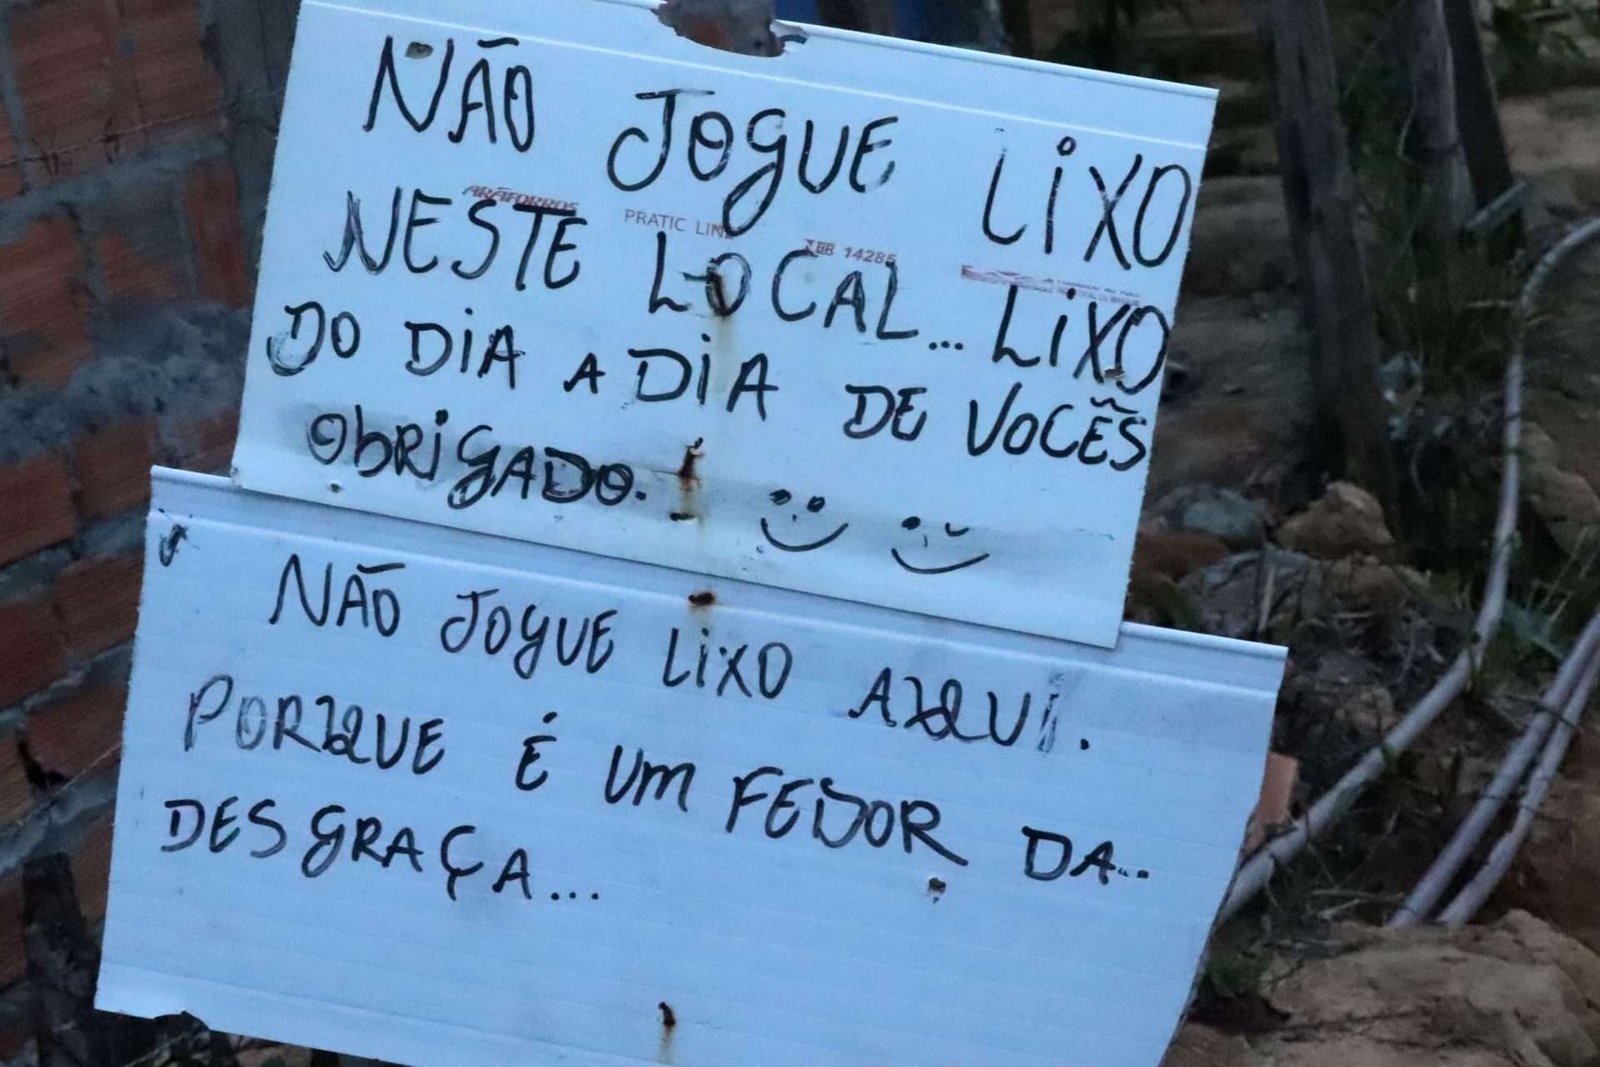 NÃO JOGUE LIXO
ARÃFORROS PRATIC LINE NBR 14285
NESTE LOCAL... LIXO
DO DIA A DIA DE VOCÊS
OBRIGADO.
NÃO JOGUE LIXO AQUI.
PORQUE É UM FEDOR DA...
DESGRAÇA...